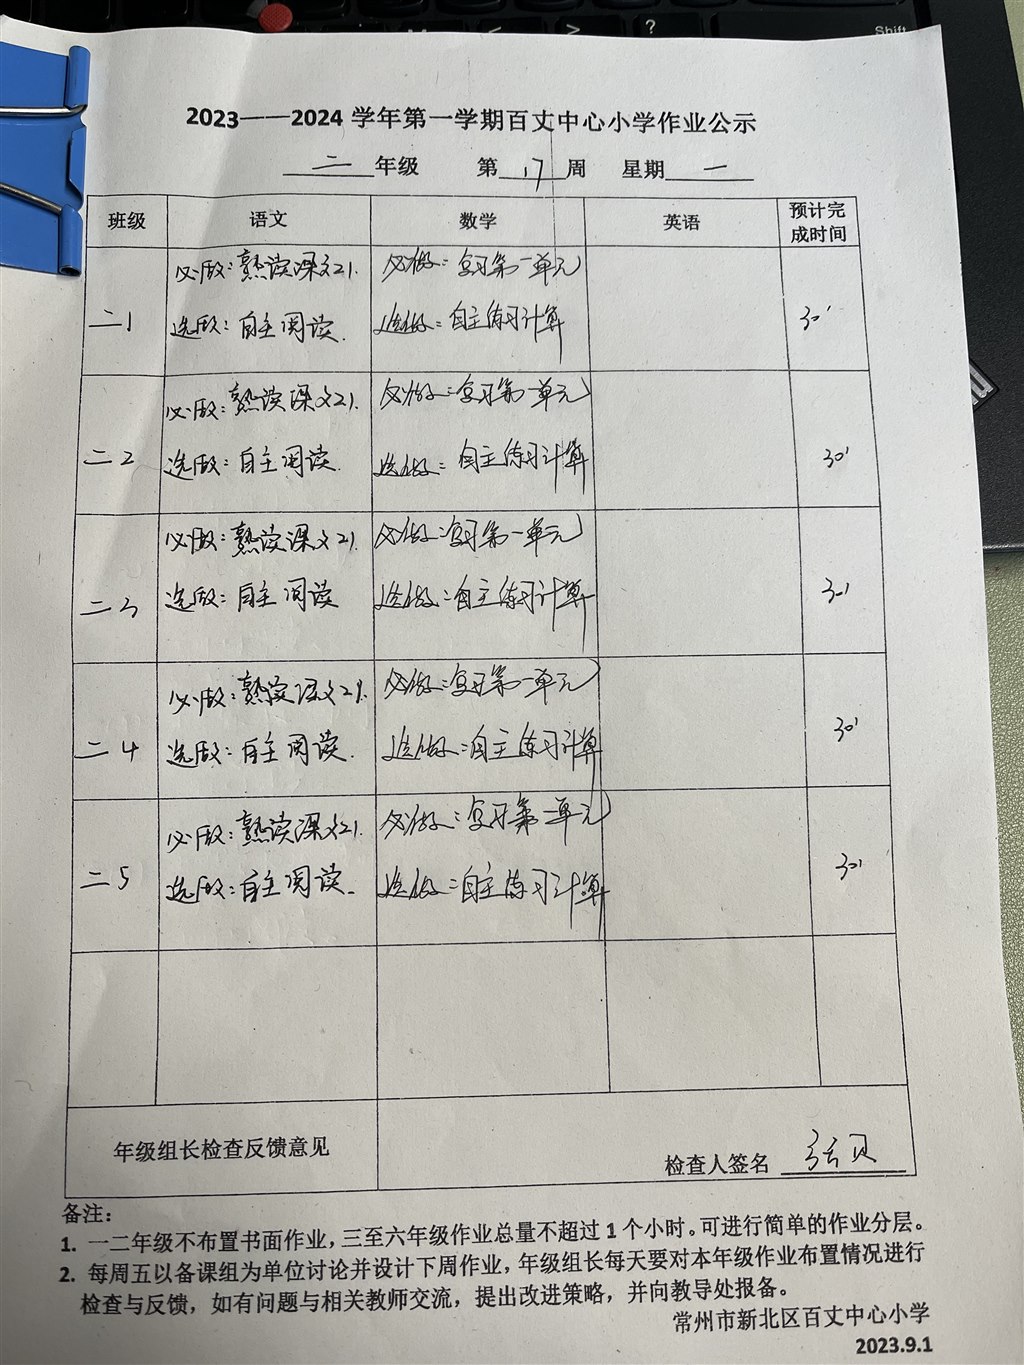 ?
Shift
2023——2024 学年第一学期百丈中心小学作业公示
二 年级 第 17 周 星期 一
班级 语文 数学 英语 预计完成时间
二1 必做：熟读课文21. 必做：复习第一单元 30'
选做：自主阅读. 选做：自主练习计算
二2 必做：熟读课文21. 必做：复习第一单元 30'
选做：自主阅读. 选做：自主练习计算
二3 必做：熟读课文21. 必做：复习第一单元 30'
选做：自主阅读 选做：自主练习计算
二4 必做：熟读课文21. 必做：复习第一单元 30'
选做：自主阅读. 选做：自主练习计算
二5 必做：熟读课文21. 必做：复习第一单元 30'
选做：自主阅读. 选做：自主练习计算
年级组长检查反馈意见
检查人签名 张贝
备注：
1. 一二年级不布置书面作业，三至六年级作业总量不超过 1 个小时。可进行简单的作业分层。
2. 每周五以备课组为单位讨论并设计下周作业，年级组长每天要对本年级作业布置情况进行
检查与反馈，如有问题与相关教师交流，提出改进策略，并向教导处报备。
常州市新北区百丈中心小学
2023.9.1